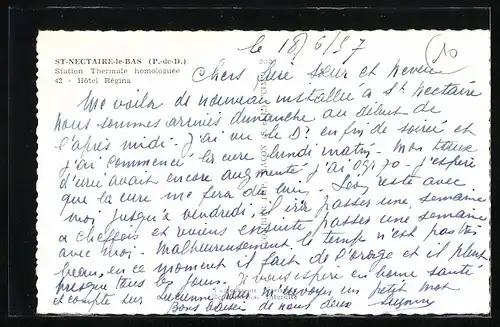 le 18/6/57
10
ST-NECTAIRE-le-BAS (P.-de-D.)
Station Thermale homologuée
42 - Hôtel Régina
Chers frère sœur et neveu
Me voilà de nouveau installée à St Nectaire
Nous sommes arrivés dimanche au début de
l'après midi - J'ai vu le Dr en fin de soirée et
j'ai commencé la cure lundi matin. Mon taux
d'urée avait encore augmenté j'ai 0g 70 - J'espère
que la cure me fera du bien. Léon reste avec
moi jusqu'à vendredi. il ira passer une semaine
à Cheffois et viens ensuite passer une semaine
avec moi. Malheureusement le temps n'est pas très
beau, en ce moment il fait de l'orage et il pleut
presque tous les jours. Je vous espère en bonne santé
et compte sur Lucienne pour m'envoyer un petit mot
Bons baisers de nous deux Suzanne